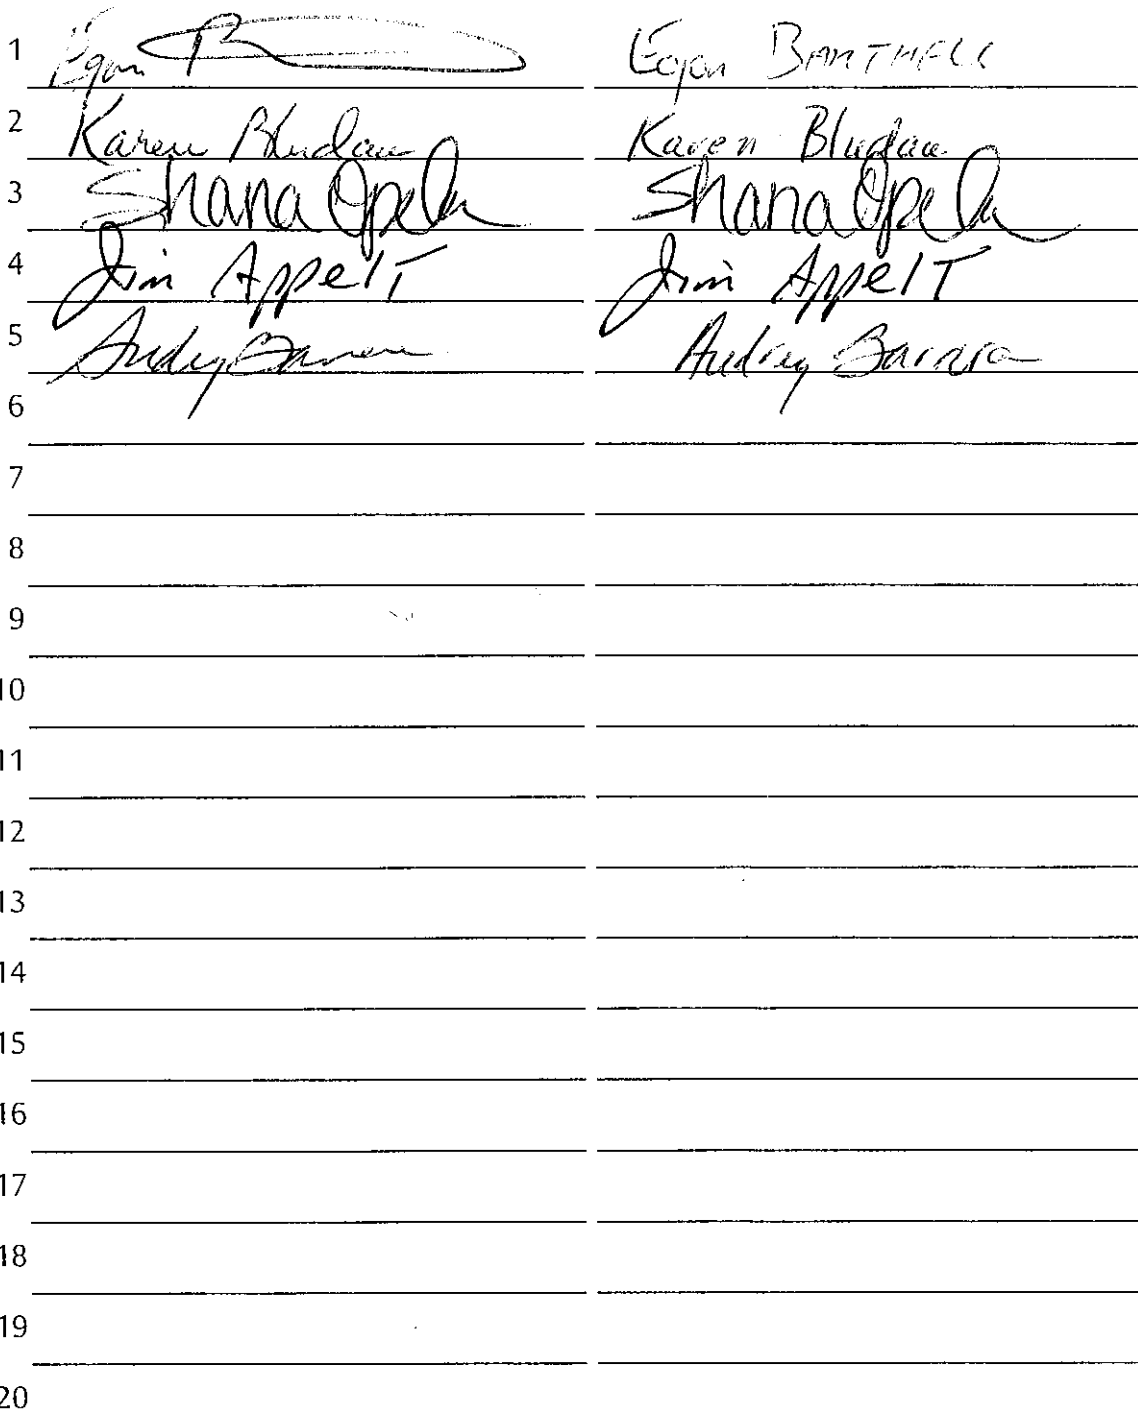 1 Egon B Egon BARTHELL
2 Karen Bludau Karen Bludau
3 Shana Opela Shana Opela
4 Jim Appelt Jim Appelt
5 Audrey Audrey
6
7
8
9
10
11
12
13
14
15
16
17
18
19
20